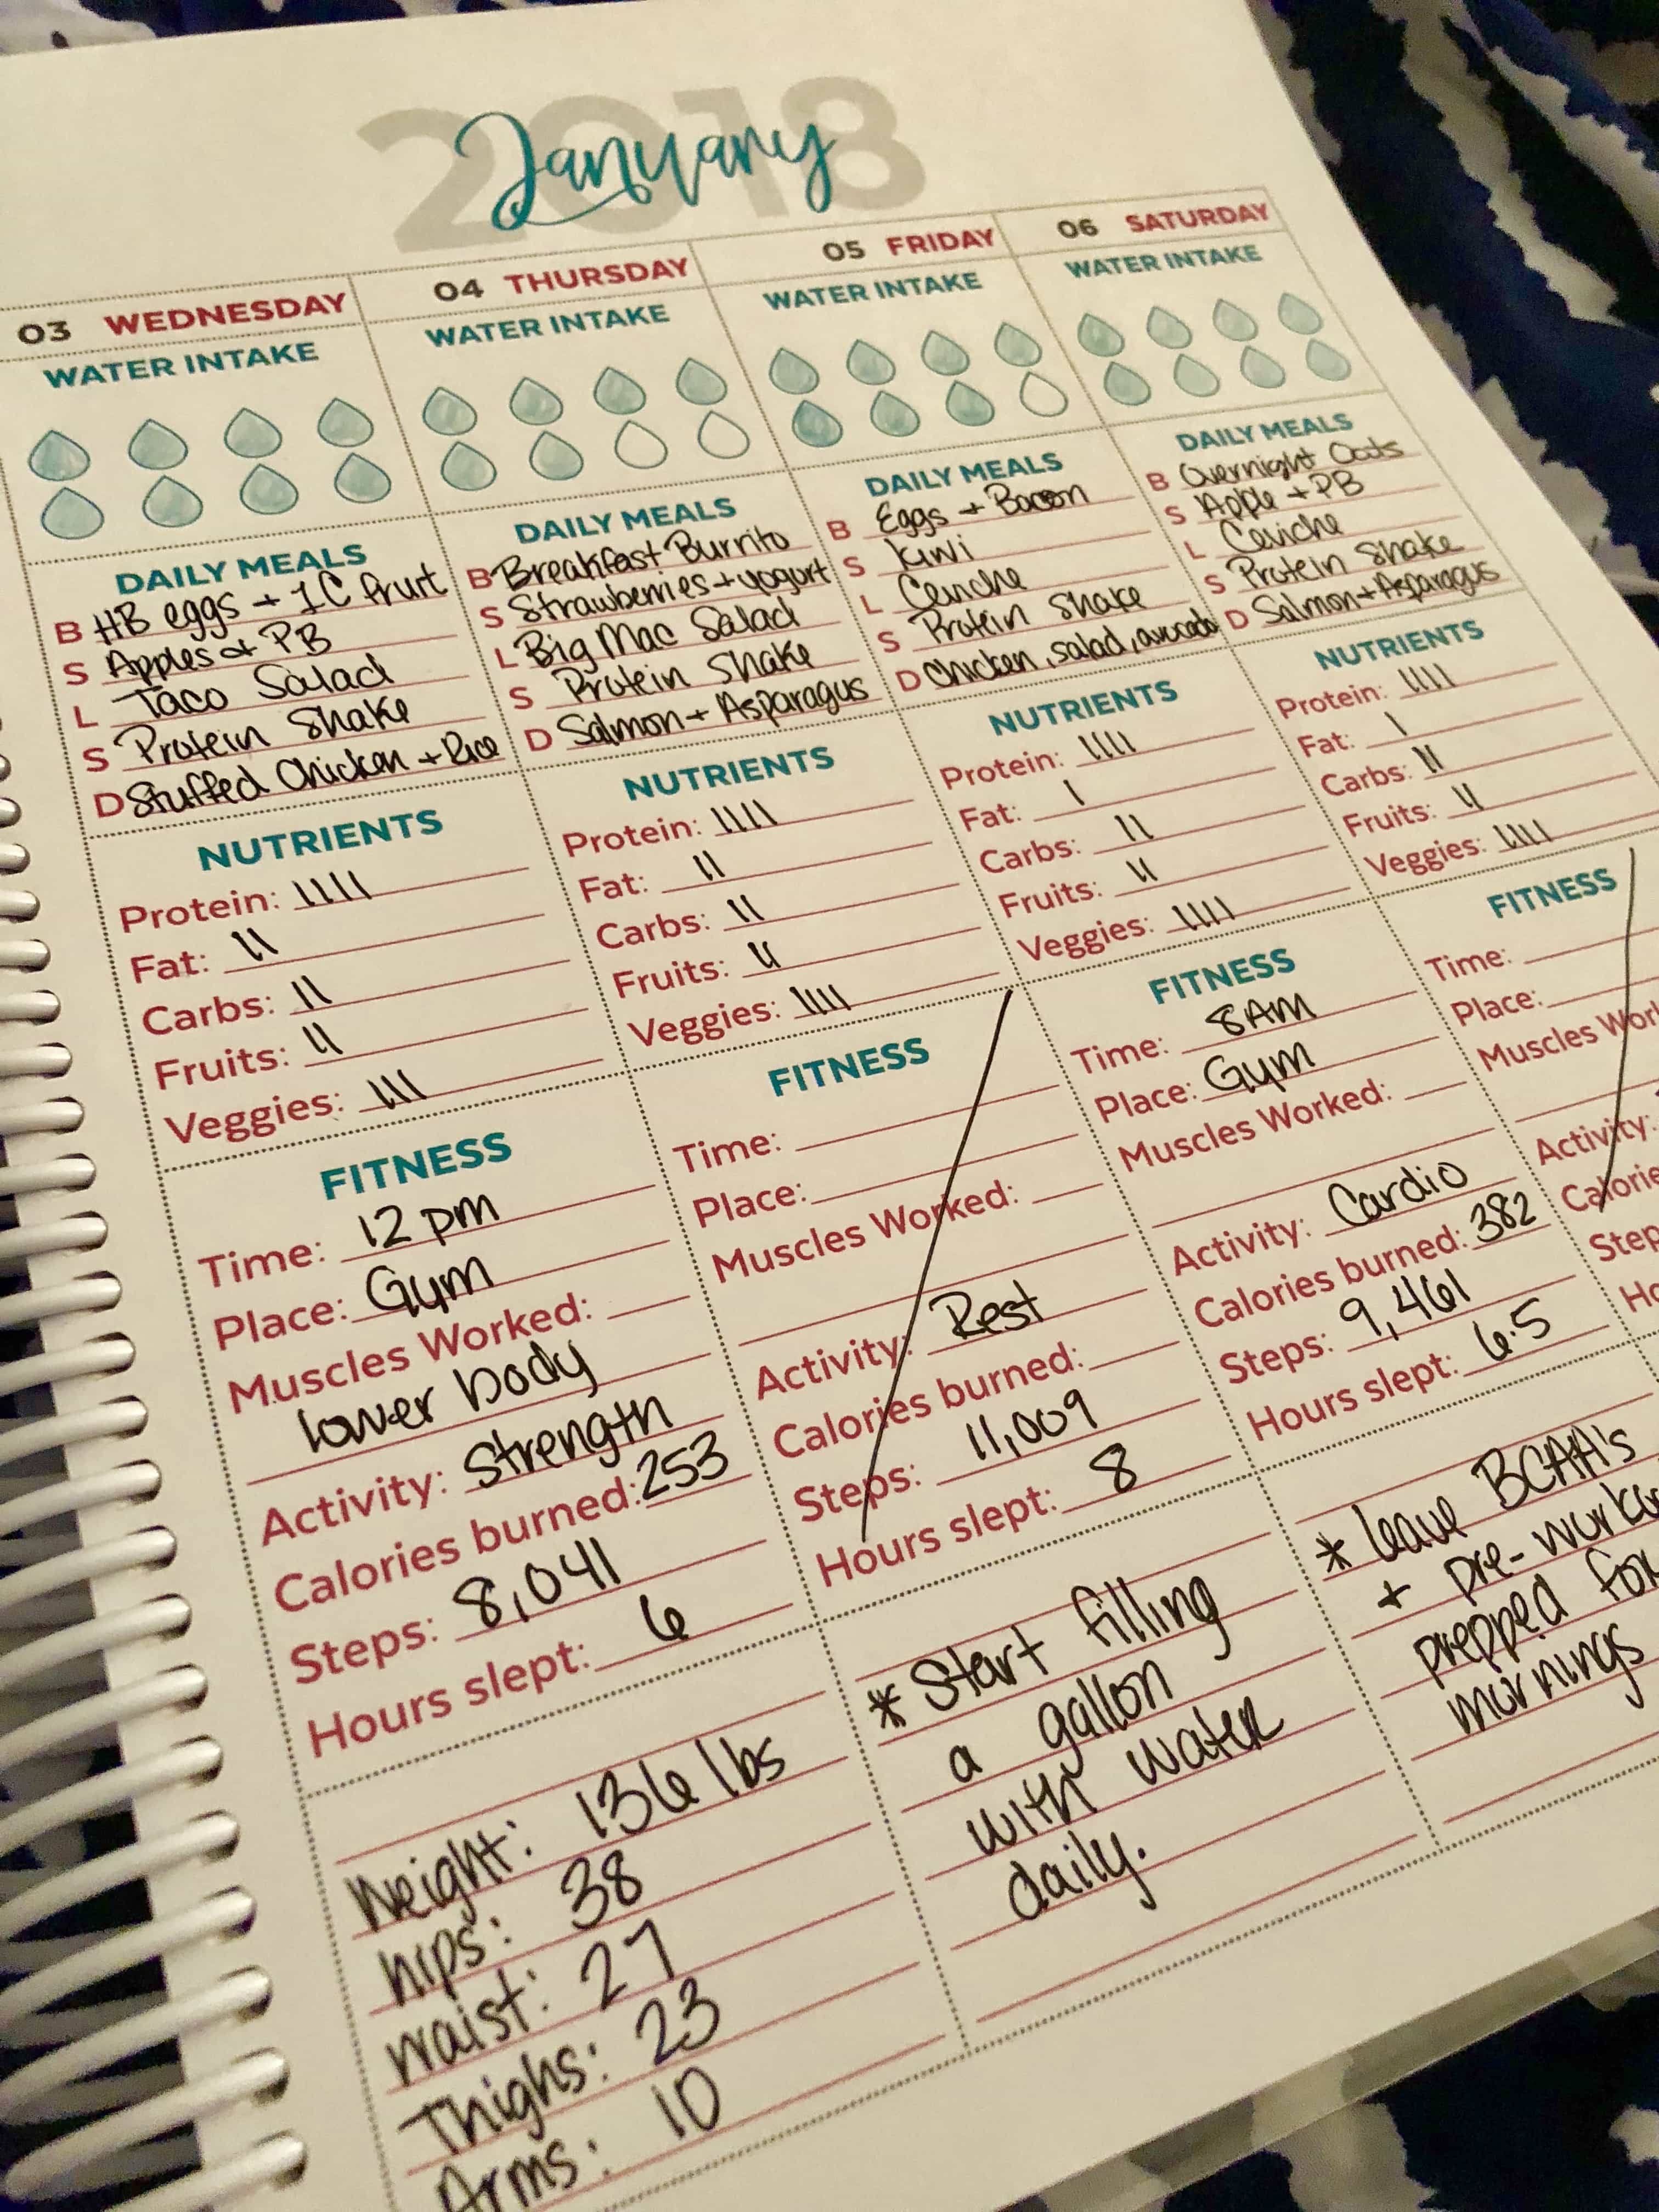 2018
January
03 WEDNESDAY
WATER INTAKE
DAILY MEALS
B HB eggs + 1C fruit
S Apples + PB
L Taco Salad
S Protein Shake
D Stuffed Chicken + Rice
NUTRIENTS
Protein: IIII
Fat: II
Carbs: II
Fruits: II
Veggies: III
FITNESS
Time: 12 pm
Place: Gym
Muscles Worked:
lower body
Activity: Strength
Calories burned: 253
Steps: 8,041
Hours slept: 6
Weight: 136 lbs
hips: 38
waist: 27
Thighs: 23
Arms: 10
04 THURSDAY
WATER INTAKE
DAILY MEALS
B Breakfast Burrito
S Strawberries + yogurt
L Big Mac Salad
S Protein Shake
D Salmon + Asparagus
NUTRIENTS
Protein: IIII
Fat: II
Carbs: II
Fruits: II
Veggies: IIII
FITNESS
Time:
Place:
Muscles Worked:
Activity: Rest
Calories burned:
Steps: 11,009
Hours slept: 8
* Start filling
a gallon
with water
daily.
05 FRIDAY
WATER INTAKE
DAILY MEALS
B Eggs + Bacon
S Kiwi
L Ceviche
S Protein Shake
D Chicken, salad, avocado
NUTRIENTS
Protein: IIII
Fat: I
Carbs: II
Fruits: II
Veggies: IIII
FITNESS
Time: 8AM
Place: Gym
Muscles Worked:
Activity: Cardio
Calories burned: 382
Steps: 9,461
Hours slept: 6.5
* leave BCAA's
+ pre-worko
prepped for
mornings
06 SATURDAY
WATER INTAKE
DAILY MEALS
B Overnight Oats
S Apple + PB
L Ceviche
S Protein Shake
D Salmon + Asparagus
NUTRIENTS
Protein: IIII
Fat: I
Carbs: II
Fruits: II
Veggies: IIII
FITNESS
Time:
Place:
Muscles Wor
Activity:
Calorie
Step
Ho